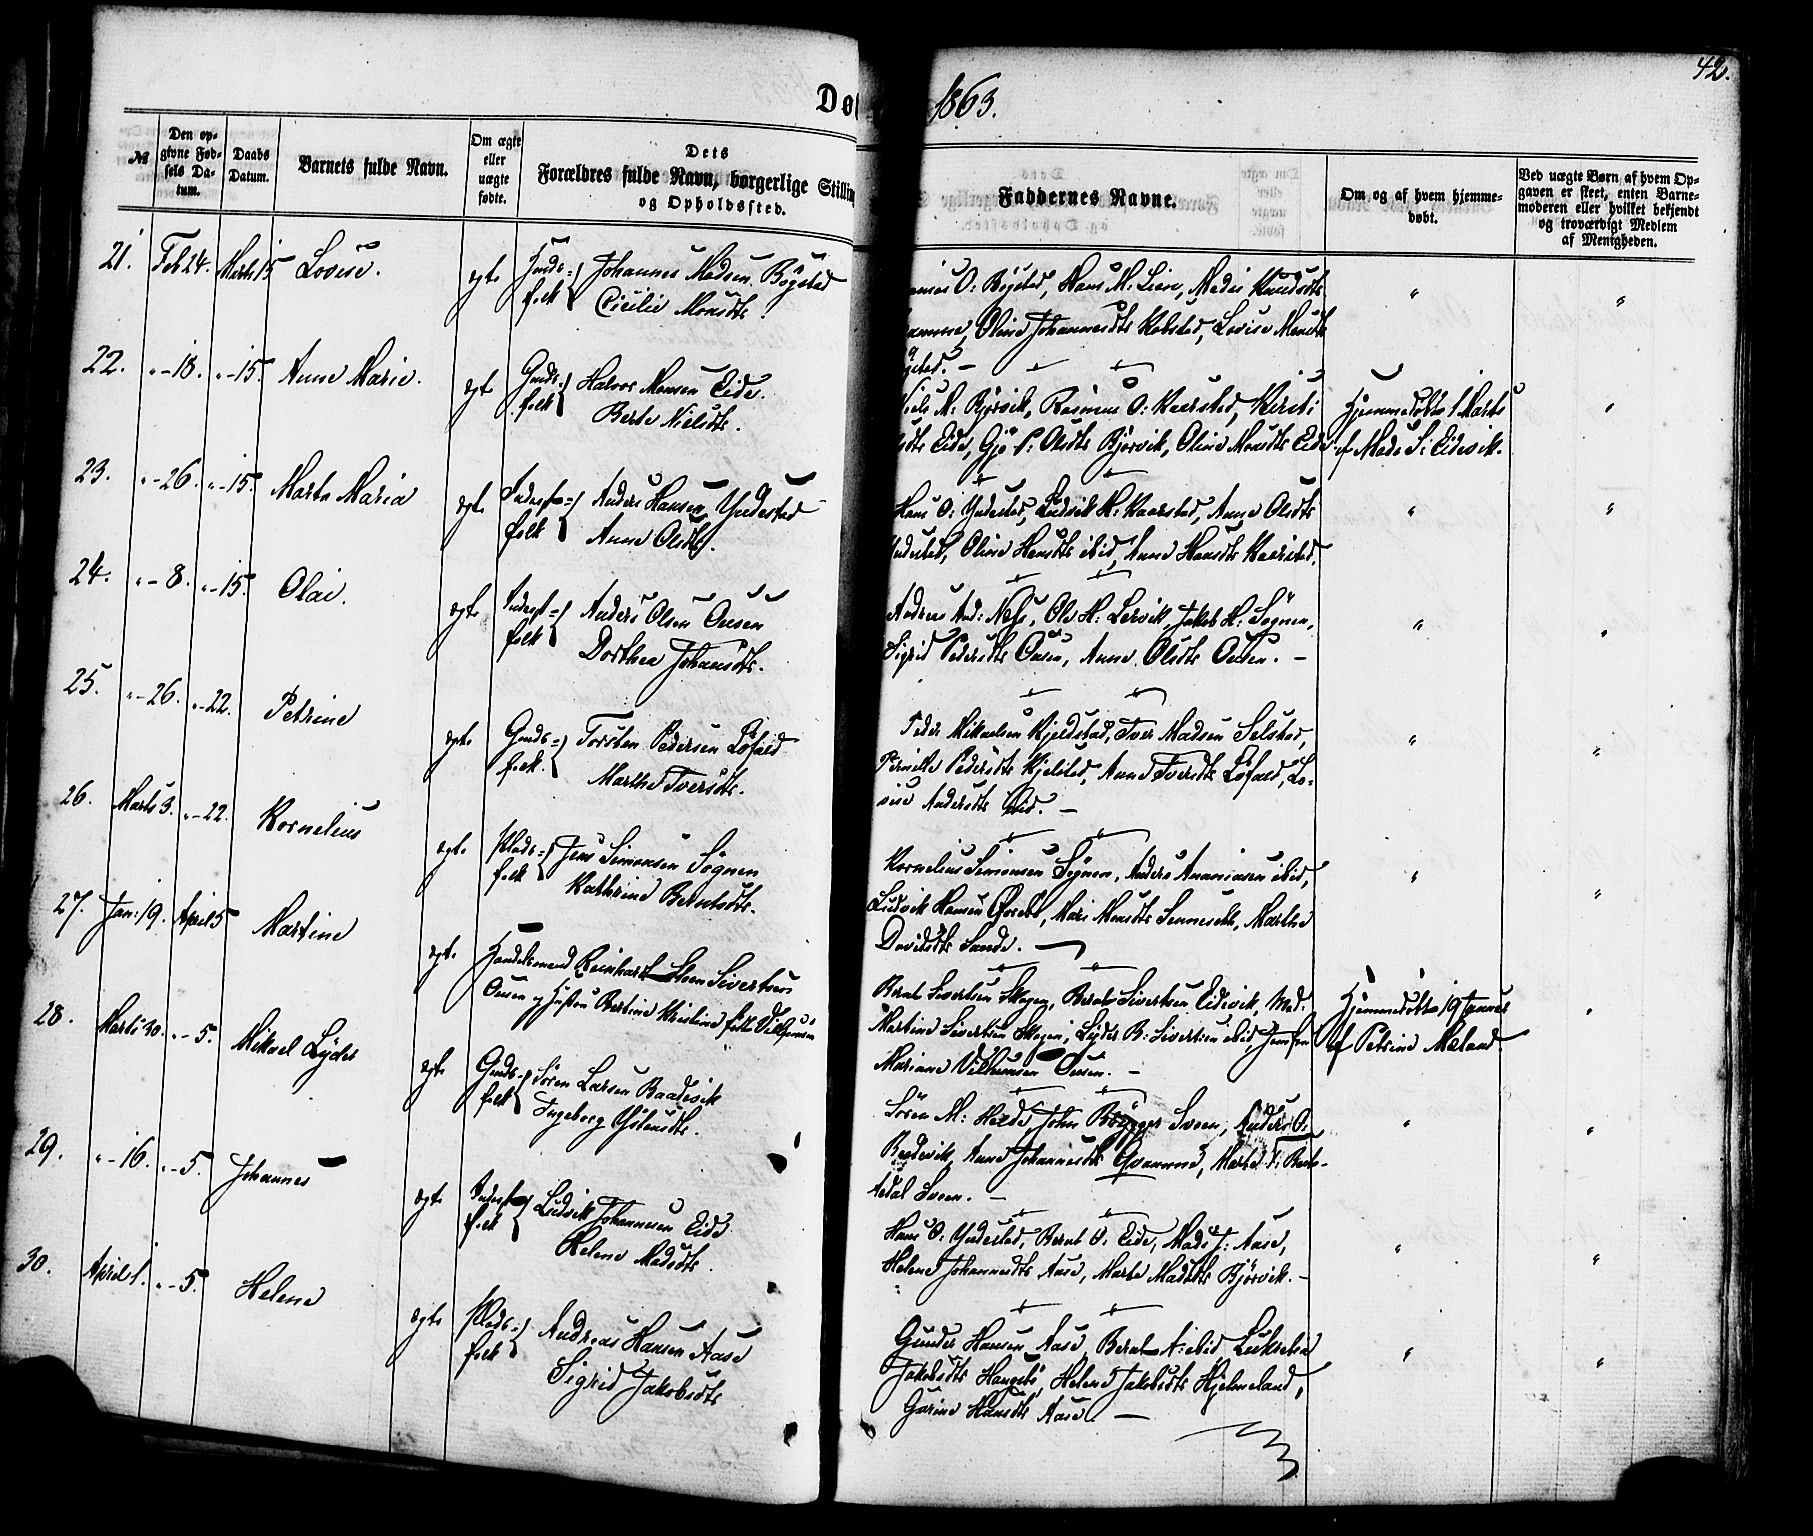 42.
Dø 1863.
№
Den opgivne Fødsels Datum.
Daabs Datum.
Barnets fulde Navn.
Om ægte eller uægte fødte.
Dets Forældres fulde Navn, borgerlige Stillin og Opholdssted.
Faddernes Navne.
Om og af hvem hjemmedøbt.
Ved uægte Børn af hvem Opgaven er skeet, enten Barnemoderen eller hvilket bekjendt og troværdigt Medlem af Menigheden.
21. Feb 24. Marts 15 Lovise. egte Gmds=folk Johannes Madsen Bøgstad
Cicilie Monsdtr.
O: Bøgstad, Hans M: Lien, Madci Knudsdtr
Oline Johannesdtr Kobstad, Lovise Monsdtr
22. " - 18. " - 15. Anne Marie. egt Gmds=folk Halvor Monsen Eide.
Berte Nielsdtr.
Niels M: Bjørvik, Rasmus O: Kaarstad, Kirsti
Eide, Gjø P: Olsdtr Bjørvik, Oline Monsdtr Eide
Hjemmedøbt 1 Marts
af Mads S: Eidevik.
23. " - 26. " - 15. Marta Maria egte Inderst=folk Anders Hansen Yndestad
Anne Olsdtr.
Hans O: Yndestad, Ludvik H: Kaarstad, Anne Olsdtr
Yndestad, Oline Hansdtr ibid, Anne Hansdtr Kaarstad.
24. " - 8. " - 15. Olai. egte Inderst=folk Anders Olsen Ousen
Dorthea Johansdtr.
Andreas And: Ness, Ole H: Lervik, Jakob H: Søgnen,
Sigrid Pedersdtr Ousen, Anne Olsdtr Ousen. -
25. " - 26. " - 22. Petrine egte Gmds=folk. Torsten Pedersen Løfald
Marthe Iversdtr.
Peder Mikaelsen Kjeldstad, Iver Madsen Selstad,
Pernille Pedersdtr Kjelstad, Anne Iversdtr Løfald, Lo=
vise Andersdtr ibid. -
26. Marts 3. " - 22. Kornelius egte Plads=folk Jens Simonsen Søgnen
Kathrine Berntsdtr.
Kornelius Simonsen Søgnen, Anders Ananiasen ibid,
Ludvik Hansen, Mari Monsdtr, Marthe
Davidsdtr Sande. -
27. Jan: 19. April 5 Martine egte. Handelsmand Reinhart Steen Sivertsen
Ousen og Hustru Bertine Kristine født Vilhemsen
Bernt Sivertsen Skogen, Bernt Sivertsen Eidevik, Mad.
Martine Sivertsen Skogen, Lyder B: Sivertsen ibid Jomfru
Mariane Vilhemsen Ousen. -
Hjemmedøbt 19 Januar
af Petrine Mæland.
28. Marts 30. " - 5. Mikael Lyder egte Gmds=folk Søren Larsen Baadsvik
Ingeborg Østensdtr.
Søren M: Helde, John Svoen, Anders O:
Anne Johannesdtr Gvamme, Marta
Svoen. -
29. " - 16. " - 5. Johannes egte Inderst=folk Ludvik Johannesen Eide
Helene Madsdtr.
Hans O: Yndestad, Bernt O: Eide, Mads J: Aase,
Helene Johannesdtr Aase, Marte Madsdtr Bjørvik. -
30. April 1. " - 5. Helene egte Plads=folk Andreas Hansen Aase
Sigrid Jakobsdtr
Gunder Hansen Aase, Bernt A: ibid Luksebia
Jakobsdtr, Helene Jakobsdtr Hjelmeland,
Gurine Hansdtr Aase. -